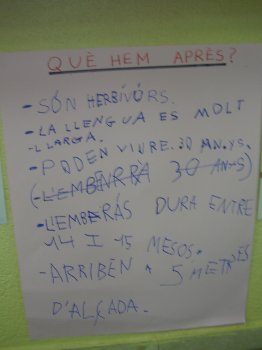 QUÈ HEM APRÈS?
-SÓN HERBÍVORS.
-LA LLENGUA ES MOLT
LLARGA.
-PODEN VIURE 30 ANYS.
(L'EMBARRÀ 30 ANYS)
-L'EMBERÁS DURA ENTRE
14 I 15 MESOS.
-ARRIBEN A 5 METRES
D'ALÇADA.